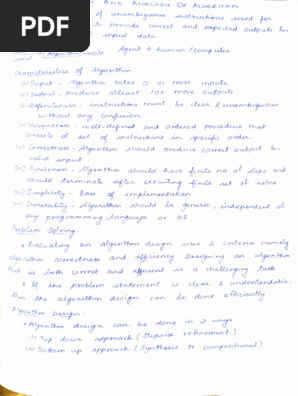 PDF
AND ANALYSIS OF ALGORITHM
of unambiguous instructions used for
to provide correct and expected outputs for
input data.
Algorithm → O/P Agent → human / computer
input
Characteristics of Algorithm.
(i) Input - Algorithm takes 0 or more inputs
(ii) Output - Produce atleast 1 or more outputs
(iii) Definiteness - instructions must be clear & unambiguous
without any confusion
(iv) Uniqueness - well-defined and ordered procedure that
consists of set of instructions in specific order.
(v) Correctness - Algorithm should produce correct output for
valid input
(vi) Finiteness - Algorithm should have finite no of steps and
should terminate after executing finite set of instrns
(vii) Simplicity - Ease of implementation
(viii) Generality - Algorithm should be generic, independent of
any programming language or OS
Problem Solving:
• Evaluating an algorithm design uses 2 criteria namely
algorithm correctness and efficiency. Designing an algorithm
that is both correct and efficient is a challenging task
• If the problem statement is clear & understandable.
then the algorithm design can be done efficiently
Algorithm Design:
• Algorithm design can be done in 2 ways
(i) Top down approach (Stepwise refinement)
(ii) Bottom up approach (Synthesis or compositional)